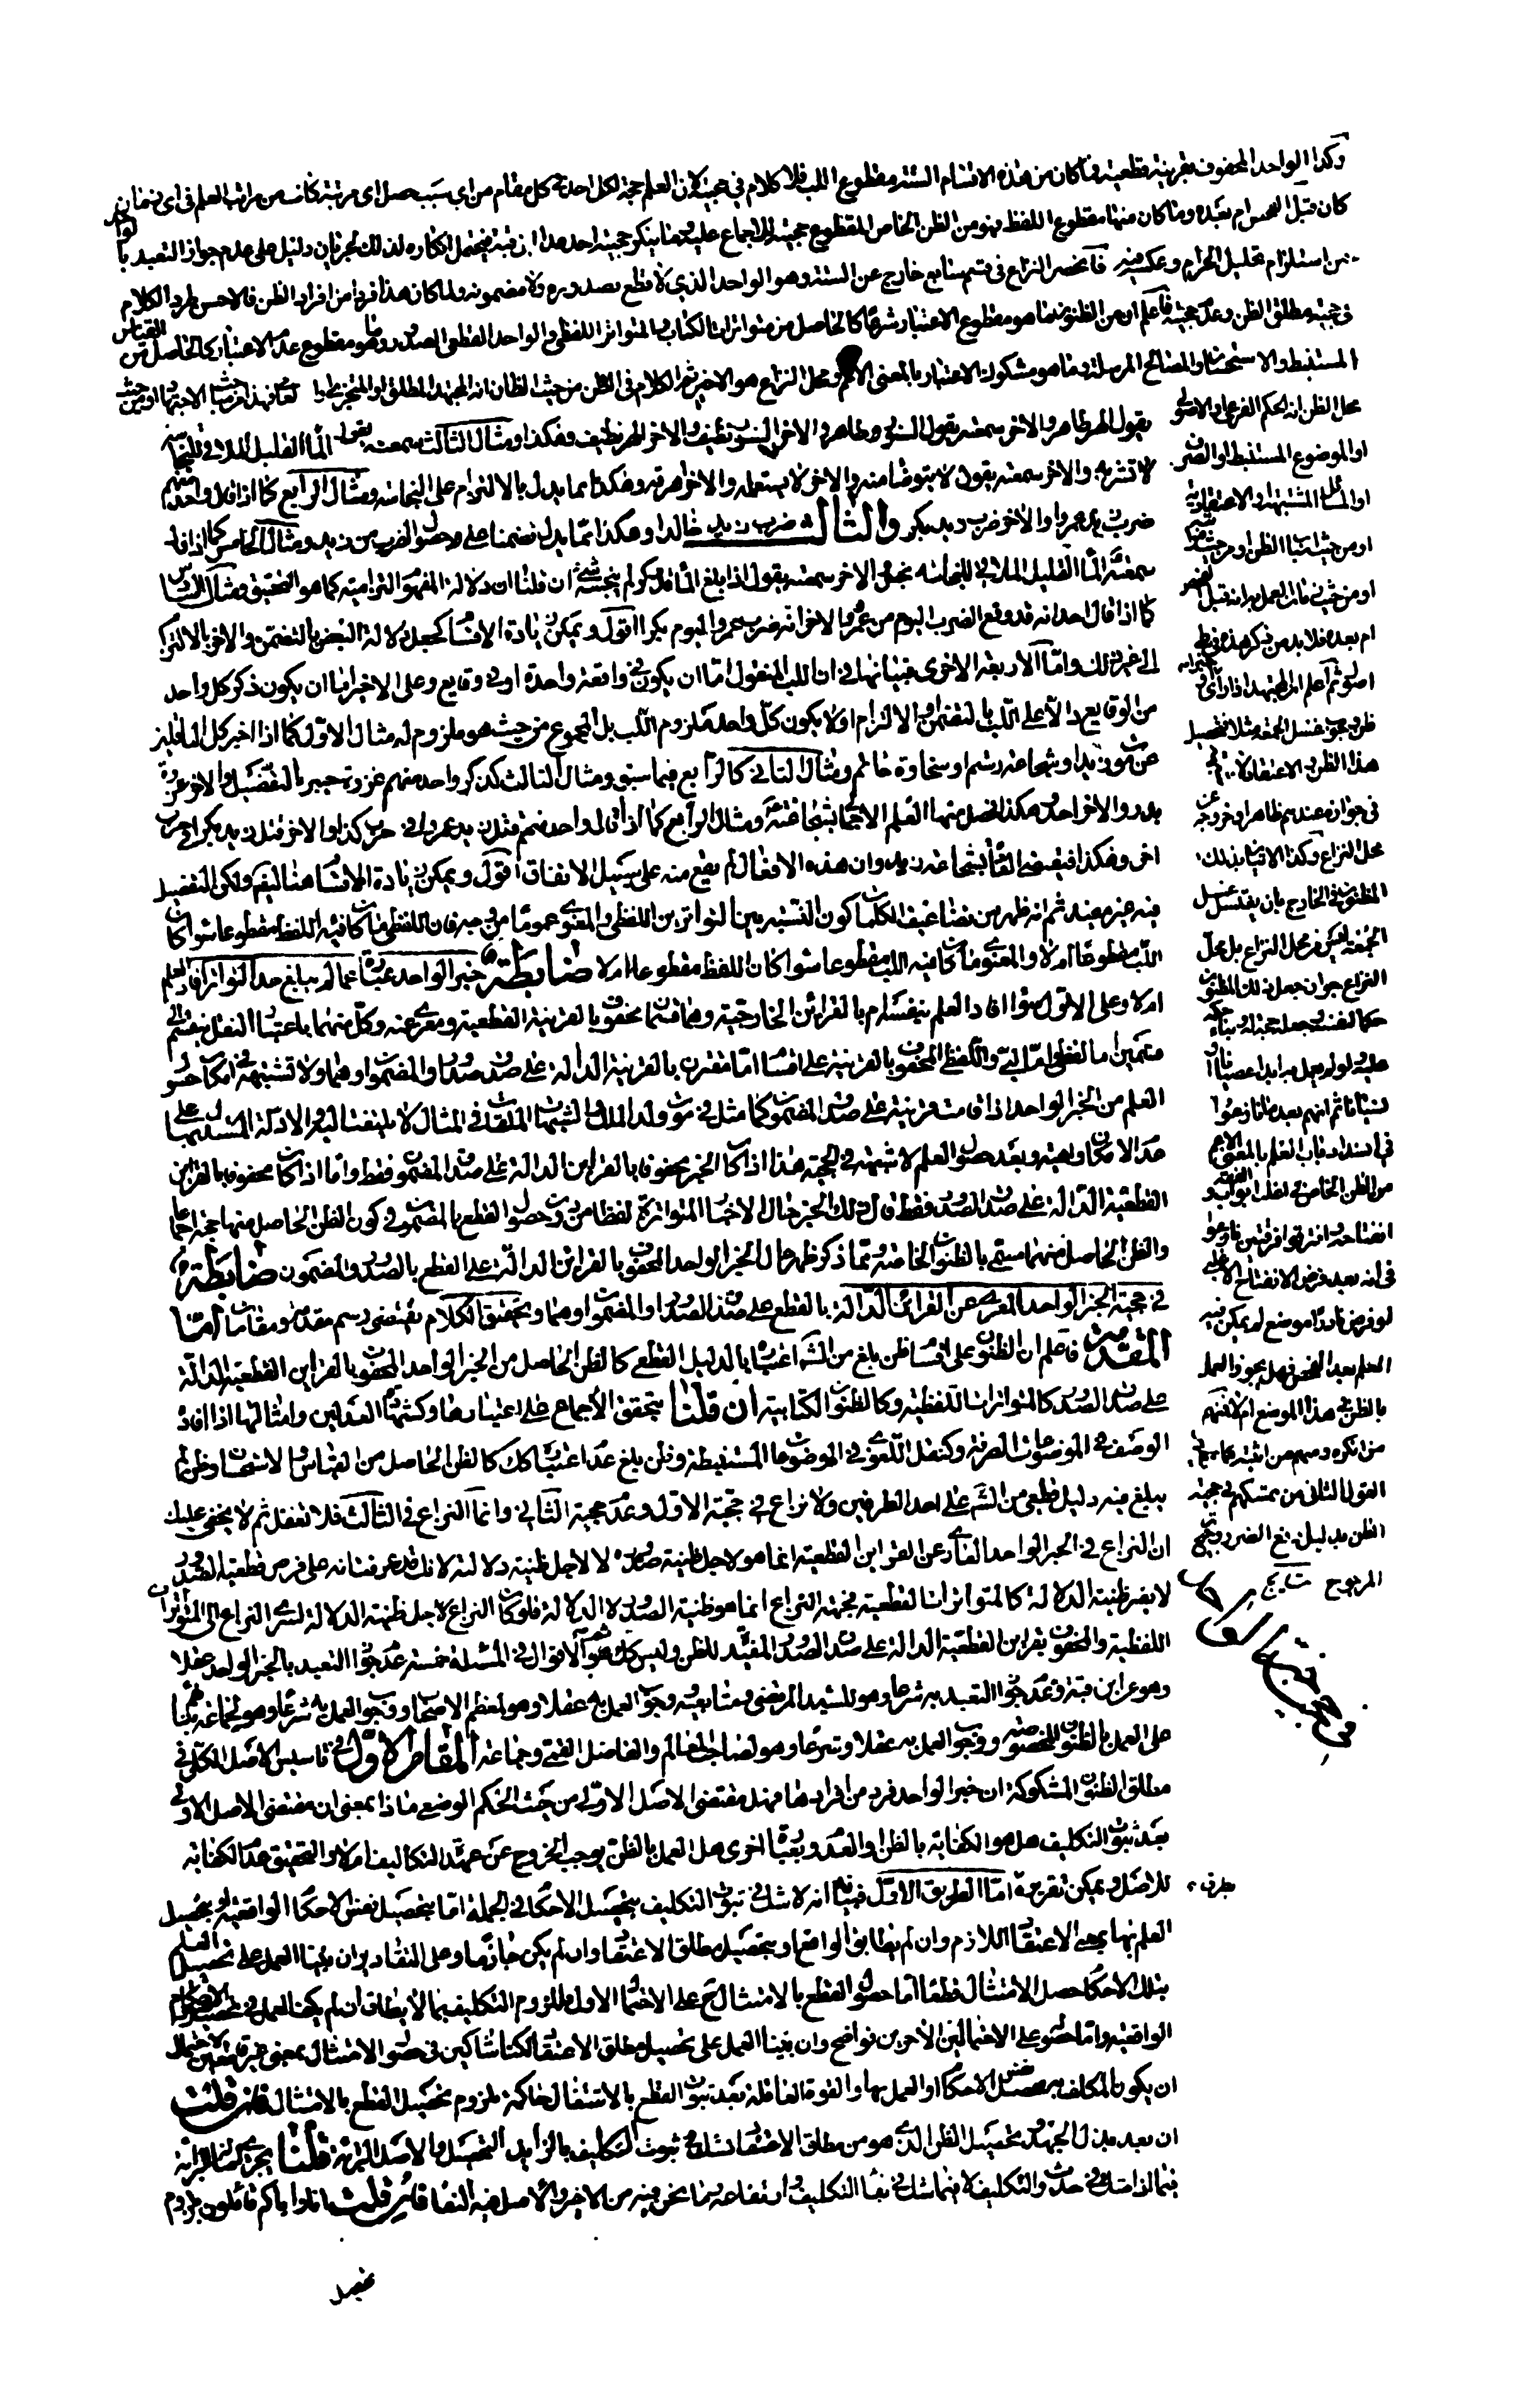 وكذا الواحد المحفوف بقرينة قطعية فما كان من هذه الاقسام الستة مقطوع اللب فلا كلام في حجيته لان العلم حجة لكل احد في كل مقام من اي سبب حصل اي مرتبة كانت من مراتب العلم في اي زمان
كان قبل الفحص ام بعده وما كان منها مقطوع اللفظ فهو من الظن الخاص المقطوع حجيته للاجماع عليه فما ينكر حجيته احد عدا ابن قبة فيحتمل انكاره لذلك لجريان دليل على عدم جواز التعبد بالواحد
من استلزام تحليل الحرام وعكسه فيه فانحصر النزاع في قسم سابع خارج عن الستة وهو الواحد الذي لا قطع بصدوره ولا مضمونه ولما كان هذا فردا من افراد الظن فالاحسن طرد الكلام
في حجية مطلق الظن وعدم حجيته فاعلم ان من الظنون ما هو مقطوع الاعتبار شرعا كالحاصل من متواترات الكتاب والمتواتر اللفظي والواحد القطعي الصدور وما هو مقطوع عدم الاعتبار كالحاصل من القياس
المستنبط والاستحسان والمصالح المرسلة وما هو مشكوك الاعتبار بالمعنى الاعم ومحل النزاع هو الاخير ثم الكلام في الظن من حيث الظان انه المجتهد المطلق او المتجزي
يقول الهر طاهر والاخر سمعته يقول السنور طاهر والاخر السنور نظيف والاخر الهر نظيف وهكذا ومثال الثالث سمعته يقول الماء القليل الملاقي للنجاسة
لا تشربه والاخر سمعته يقول لا يتوضأ منه والاخر لا يستعمله والاخر اهرقه وهكذا مما يدل بالالتزام على النجاسة ومثال الرابع كما اذا قال واحد منهم
ضرب زيد عمروا والاخر ضرب زيد بكر والثالث ضرب زيد خالدا وهكذا مما يدل تضمنا على حصول الضرب من زيد ومثال الخامس كما اذا قال
سمعته الماء القليل الملاقي للنجاسة نجس والاخر سمعته يقول اذا بلغ الماء قدر كر لم ينجسه شيء ان قلنا ان دلالة المفهوم التزامية كما هو التحقيق ومثال السادس
كما اذا قال احد انه قد وقع الضرب اليوم من عمرو والاخر انه ضرب عمرو اليوم بكرا اقول ويمكن زيادة الاقسام كجعل دلالة البعض بالتضمن والاخر بالالتزام
الى غير ذلك واما الاربعة الاخرى فبيانها في ان اللب المنقول اما ان يكون في واقعة واحدة او في وقايع وعلى الاخير اما ان يكون ذكر كل واحد
من الوقايع دالا على اللب بالتضمن او الالتزام او لا يكون كل واحد ملزوم اللب بل المجموع من حيث هو ملزوم له مثال الاول كما اذا اخبر كل الناقلين
عن موت زيد او شجاعة رستم او سخاوة حاتم ومثال الثاني كالرابع فيما سبق ومثال الثالث كذكر واحد منهم غزوة خيبر بالتفصيل والاخر غزوة
بدر والاخر احد وهكذا فحصل منها العلم الاجمالي بشجاعته ومثال الرابع كما اذا قال واحد منهم قتل زيد عمروا في حرب كذا والاخر قتل زيد بكرا في حرب
اخر وهكذا فيقضي العادة بشجاعة زيد وان هذه الافعال لم يقع منه على سبيل الاتفاق اقول ويمكن زيادة الاقسام هنا ايضا ولكن التفصيل
فيه غير مفيد ثم انه ظهر من تضاعيف الكلمات كون النسبة بين التواتر من اللفظي والمعنوي عموما من وجه فان اللفظي ما كان فيه اللفظ مقطوعا سواء كان
اللب مقطوعا ام لا والمعنوي ما كان فيه اللب مقطوعا سواء كان اللفظ مقطوعا ام لا ضابطة خبر الواحد عبارة عما لم يبلغ حد التواتر افاد العلم
ام لا وعلى الاول سواء افاد العلم بنفسه ام بالقرائن الخارجية وهنا قسمان محفوف بالقرينة القطعية ومعرى عنه وكل منهما باعتبار النقل ينقسم الى
قسمين اما لفظي واما لبي واللفظي المحفوف بالقرينة على اقسام اما مقترن بالقرينة الدالة على صدق صدوره او المضمون او هما ولا شبهة في امكان حصول
العلم من الخبر الواحد اذا قامت قرينة على صدق المضمون كما مثل في موت ولد الملك والشبهات الملقاة في المثال لا يلتفت اليها والادلة المستدل بها على
عدم الامكان واهية وبعد حصول العلم لا شبهة في الحجية هذا اذا كان الخبر محفوفا بالقراين الدالة على صدق المضمون فقط واما اذا كان محفوفا بالقراين
القطعية الدالة على صدق الصدور فقط فحال ذلك الخبر حال الاخبار المتواترة لفظا من دون حصول القطع بالمضمون في كون الظن الحاصل منها حجة اجماعا
والظن الحاصل منهما مسمى بالظنون الخاصة ومما ذكر ظهر حال الخبر الواحد المحفوف بالقراين الدالة على القطع بالصدور والمضمون ضابطة
في حجية الخبر الواحد المعرى عن القرائن الدالة بالقطع على صدق الصدور او المضمون او هما وتحقيق الكلام يقتضي رسم مقدمة ومقامات اما
المقدمة فاعلم ان الظنون على اقسام ظن بلغ من الشرع اعتباره بالدليل القطعي كالظن الحاصل من الخبر الواحد المحفوف بالقراين القطعية الدالة
على صدق الصدور كالمتواترات اللفظية وكالظنون الكتابية ان قلنا بتحقق الاجماع على اعتبارها وكشهادة العدلين وامثالها اذا افاد
الوصف في الموضوعات الصرفة وكنقل اللغوي في الموضوعات المستنبطة وظن بلغ عدم اعتباره كك كالظن الحاصل من القياس والاستحسان وظن لم
يبلغ فيه دليل قطعي من الشرع على احد الطرفين ولا نزاع في حجية الاول وعدم حجية الثاني وانما النزاع في الثالث فلا تغفل ثم لا يخفى عليك
ان النزاع في الخبر الواحد العاري عن القراين القطعية انما هو لاجل ظنية صدوره لا لاجل ظنية دلالته لانك قد عرفت انه على فرض قطعية الصدور
لا يضر ظنية الدلالة كالمتواترات القطعية فجهة النزاع انما هو ظنية الصدور لا الدلالة فلو كان النزاع لاجل ظنية الدلالة لسرى النزاع الى المتواترات
اللفظية والمحفوف بقراين القطعية الدالة على صدق الصدور المفيد للظن وليس كك ثم الاقوال في المسئلة خمسة عدم جواز التعبد بالخبر الواحد عقلا
وهو عن ابن قبة وعدم جواز التعبد به شرعا وهو للسيد المرتضى ومتابعيه وجوب العمل به عقلا وهو لمعظم الاصحاب ووجوب العمل به شرعا وهو لجماعة
على العمل بالظنون المخصوصة ووجوب العمل به عقلا وشرعا وهو لصاحب المعالم والفاضل القمي وجماعة المقام الاول في تاسيس الاصل الكلي في
مطلق الظنون المشكوكة ان خبر الواحد فرد من افرادها فهل مقتضى الاصل الاولي من حيث الحكم الوضعي ماذا بمعنى ان مقتضى الاصل الاولي
بعد ثبوت التكليف هل هو الكفاية بالظن او العدم وبعبارة اخرى هل العمل بالظن يوجب الخروج عن عهدة التكاليف ام لا والتحقيق عدم الكفاية
للاصل ويمكن تقريره اما الطريق الاول فبيانه انه لا شك في ثبوت التكليف بتحصيل الاحكام في الجملة اما بتحصيل نفس الاحكام الواقعية او بتحصيل
العلم بها يعني الاعتقاد اللازم وان لم يطابق الواقع او بتحصيل مطلق الاعتقاد وان لم يكن جازما وعلى التقادير ان بنينا العمل على تحصيل العلم
بتلك الاحكام حصل الامتثال قطعا اما حصول القطع بالامتثال ح على الاحتمال الاول فللزوم التكليف بما لا يطاق ان لم يكف العمل في تحصيل الاحكام
الواقعية واما حصوله على الاحتمالين الاخرين فواضح وان بنينا العمل على تحصيل مطلق الاعتقاد لكنا شاكين في حصول الامتثال
ان يكون المكلف به تحصيل نفس الاحكام او العمل بها والقوة العاقلة بعد ثبوت القطع بالاشتغال حاكمة بلزوم تحصيل القطع بالامتثال فان قلت
ان بعد بذل الجهد في تحصيل الظن الذي هو من مطلق الاعتقاد نشك في ثبوت التكليف بالزايد التحصيل والاصل البرائة قلنا يجري اصالة البرائة
فيما اذا شك في حدوث التكليف لا فيما شك في بقاء التكليف وارتفاعه وما نحن فيه من الاخير والاصل فيه البقاء فان قلت انا واياكم قائلون بلزوم
تحصيل
محل الظن انه الحكم الفرعي او الاصولي
او الموضوع المستنبط او الصرف
او المسائل المشتبهة والاعتقادية
او من حيث اسباب الظن او من حيث
او من حيث زمان العمل به انه قبل الفحص
ام بعده فلا بد من ذكر هذه في طي
اصول ثم اعلم ان المجتهد اذا رأى
ظن وجوب غسل الجمعة مثلا فتحصيل
هذا الظن والاعتقاد
في جوازه عندهم ظاهرا وخروجه عن
محل النزاع وكذا الاتيان بذلك
المظنون في الخارج بان يغتسل غسل
الجمعة ليس من محل النزاع بل محل
النزاع جواز جعل ذلك المظنون
حكما لنفسه وجعله حجة له وبناء حكمه
عليه ولو لم يعمل به ابدا عصيانا او
نسيانا ثم انهم بعد ما تنازعوا
في انسداد باب العلم بالمعنى الاعم
من الظن الخاص في اغلب ابواب الفقه و
انفتاحه افترقوا فرقتين فنازعوا
في انه بعد فرض الانفتاح الاغلبي
لو فرض نادرا موضع لم يمكن فيه
العلم بعد الفحص فهل يجوز العمل
بالظن في هذا الموضع ام لا فمنهم
من انكره ومنهم من اثبته
القول الثاني من تمسكهم في حجية
الظن بدليل دفع الضرر وترجيح
المرجوح